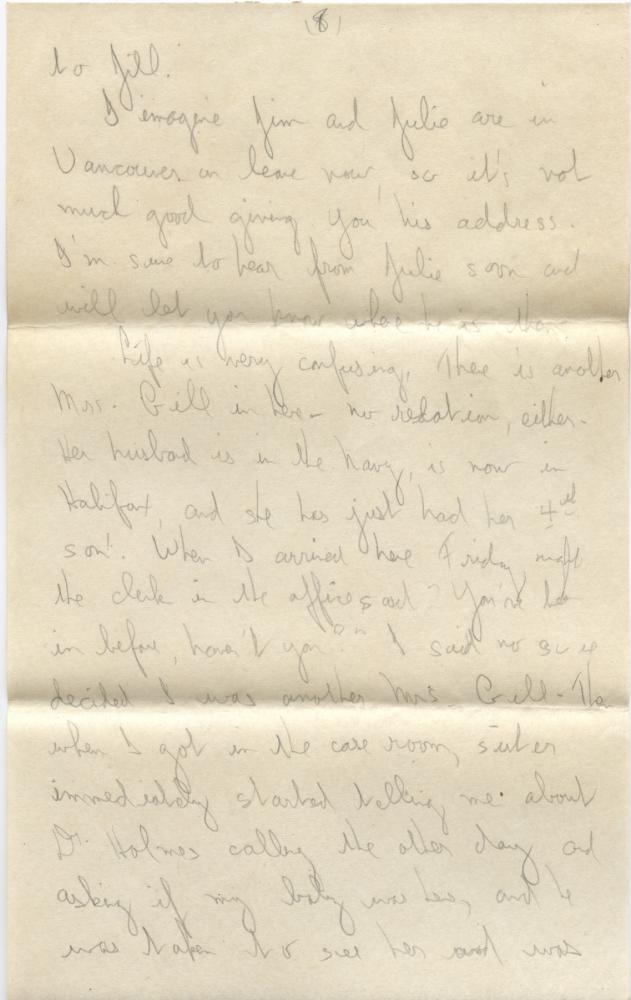 (8)
to Jill.
I imagine Jim and Julie are in
Vancouver on leave now, so it's not
much good giving you his address.
I'm sure to hear from Julie soon and
will let you know where he is then.
Life is very confusing. There is another
Mrs. Gill in here - no relation, either.
Her husband is in the Navy, is now in
Halifax, and she has just had her 4th
son! When I arrived here Friday night
the clerk in the office said "You've been
in before, haven't you?" I said no so we
decided I was another Mrs. Gill - Then
when I got in the case room, sister
immediately started telling me about
Dr. Holmes calling the other day and
asking if my baby was here, and he
was taken to see her and was